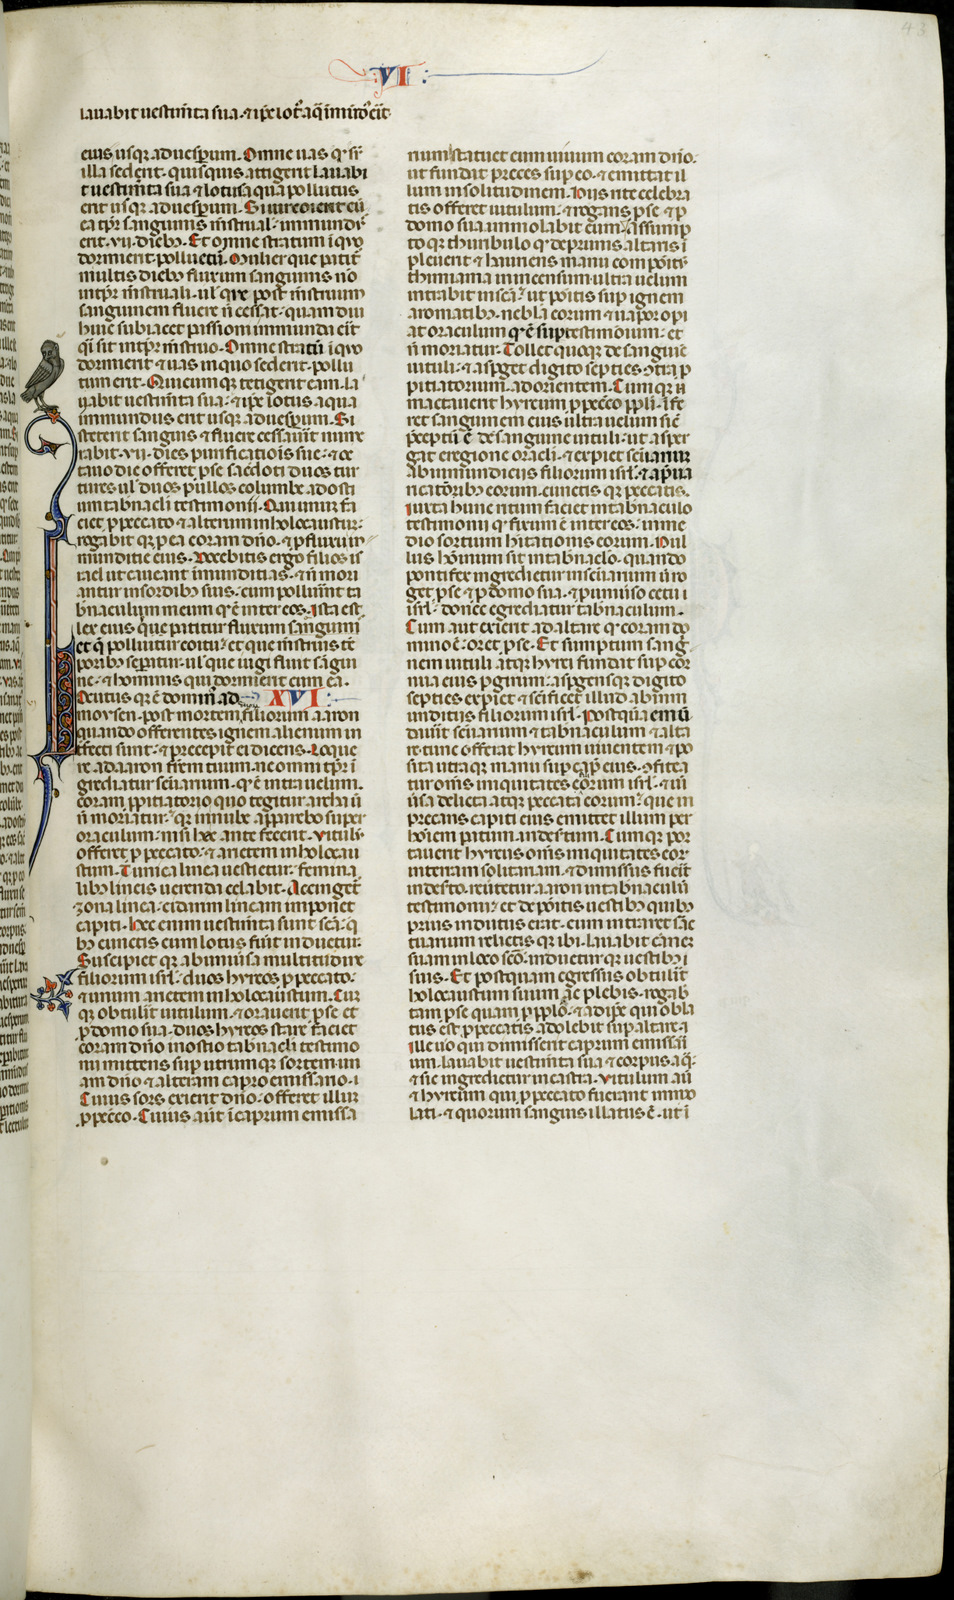 43
VI
lauabit uestim̄ta sua · ⁊ ip̄e lot᷒ aq̄ inmūd᷒ erit
eius usq; ad uesp̄um. Omne uas q̄ sr̄
illa sederit · quisquis attigerit lauabi
t uestim̄ta sua ⁊ lotus aqua pollutus
erit usq; ad uesp̄um. Si uir coierit cū
ea tp̄r sanguinis m̄strual · inmundus
erit · vii · dieb; · Et omne stratum ī quo
dormierit polluet᷒ · Mulier que patit᷒
multis dieb; fluxum sanguinis nō
in tp̄r m̄struali · ul᷒ que post m̄struum
sanguinem fluere n̄ cessat · quam diu
huic subiacet passioni inmunda erit
q̄i sit in tp̄r m̄struo · Omne stratū ī quo
dormierit ⁊ uas in quo sederit · pollu
tum erit · Quicumq; tetigerit eam · la
uabit uestim̄ta sua · ⁊ ip̄e lotus aqua
inmundus erit usq; ad uesp̄um · Si
steterit sanguis ⁊ fluere cessauit nume
rabit · vii · dies purificatiōis sue · ⁊ oc
tauo die offeret p̄ se sac̄doti duos tur
tures ul᷒ duos pullos columbe ad osti
um tabnac̄li testimonii · Qui unum fa
ciet p̄ peccato ⁊ alterum in holocaustum ·
rogabit q; p̄ ea coram dn̄o · ⁊ p̄ fluxu in
munditie eius · Docebitis ergo filios is
rael ut caueant inmunditias · ⁊ n̄ mori
antur in sordib; suis · cum polluint ta
bn̄aculum meum q̄ ē inter eos · Ista est
lex eius que patitur fluxum sanguini
et q̄ polluitur coitu · et que m̄struis tē
porib; sep̄atur · ul᷒ que iugi fluit sāgui
ne · ⁊ hominis qui dormierit cum ea ·
Locutus q; ē domin᷒ ad XVI
moysen · post mortem filiorum aaron
quando offerentes ignem alienum in
t̄fecti sunt · ⁊ precepit ei dicens · Loque
re ad aaron frēm tuum · ne omni tp̄r ī
grediatur sc̄uarium · q̄ ē intra uelum
coram p̄pitiatorio quo tegitur archa ū
n̄ moriatur · q; in nube apparebo super
oraculum · nisi hec ante fecerit · Vitulū
offeret p̄ peccato · ⁊ arietem in holocau
stum · Tunica linea uestietur · femina
lib; lineis uerenda celabit · Accinget᷒
zona linea · cidarim lineam imponet
capiti · Hec enim uestim̄ta sunt sc̄a · q̄
b; cunctis cum lotus fuit induetur ·
Suscipiet q; ab uniuisa multitudine
filiorum isrl · duos hyrcos p̄ peccato ·
⁊ unum arietem in holocaustum · Cum
q; obtulit uitulum · ⁊ orauerit p̄ se et
p̄ domo sua · duos hyrcos stare faciet
coram dn̄o in ostio tabn̄ac̄li testimo
nii mittens sup utrumq; sortem · un
am dn̄o ⁊ alteram capro emissario ·
Cuius sors exierit dn̄o · offeret illum
p̄ pec̄co · Cuius aūt ī caprum emissa
rium statuet eum uiuum coram dn̄o ·
ut fundat preces sup eo · ⁊ emittat il
lum in solitudinem · Hiis rite celebra
tis offeret uitulum · ⁊ rogans p̄ se ⁊ p̄
domo sua immolabit eum · assump
to q; thuribulo q̄ de prunis altaris ī
pleuerit ⁊ hauriens manu compōitū
thimiama in incensum · ultra uelum
intrabit in sc̄a · ut pōitis sup ignem
aromatib; · nebla eorum ⁊ uapor opi
at oraculum q̄ ē sup testimonium · et
n̄ moriatur · Tollet quoq; de sanguīe
uituli · ⁊ asp̄get digito septies ɔtra p̄
pitiatorium · ad orientem · Cumq; 
mactauerit hyrcum p̄ pec̄co p̄pli · īfe
ret sanguinem eius ultra uelum sic̄
p̄ceptū ē de sanguine uituli · ut asper
gat e regione orac̄li · ⁊ expiet sc̄uarium
ab inmundiciis filiorum isrl · ⁊ a p̄ua
ricatōnib; eorum · cunctis q; peccatis ·
Iuxta hunc ritum faciet in tabn̄aculo
testimonii q̄ fixum ē inter eos · in me
dio sortium hītationis eorum · Nul
lus hoīnum sit in tabn̄aclo · quando
pontifex ingredietur in sc̄uarium ū ro
get p̄ se ⁊ p̄ domo sua · ⁊ p̄ uniuiso cetu ī
isrl · donec egrediatur tabn̄aculum ·
Cum aut exierit ad altare q̄ coram do
mino ē · oret p̄ se · Et sumptum sang
nem uituli atq; hyrci fundat sup cor
nua eius p̄ girum · asp̄gensq; digito
septies expiet ⁊ sc̄ificet illud ab inm
unditiis filiorum isrl · Postquā emū
dauit sc̄uarium ⁊ tabn̄aculum ⁊ alta
re · tunc offerat hyrcum uiuentem ⁊ po
sita utraq; manu sup cap̄ eius · ɔfitea
tur om̄s iniquitates eorum isrl · ⁊ un̄
iūsa delicta atq; peccata eorum · que im
precans capiti eius emittet illum per
hoīem patum · in desertum · Cumq; por
tauerit hyrcus om̄s iniquitates eor᷒
in terram solitariam · ⁊ dimissus fuerit
in desto · reūtetur aaron in tabn̄aculū
testimonii · et depōitis uestib; quib;
prius indutus erat · cum intraret sāc
tuarium relictis q; ibi · lauabit carnē
suam in loco sc̄o · induetur q; uestib;
suis · Et postquam egressus obtulit
holocaustum suum ac plebis · rogab
tam p̄ se quam p̄ p̄plo · ⁊ adipe qui obla
tus est p̄ peccatis adolebit sup altare ·
Ille uo qui dimiserit caprum emissari
um · lauabit uestim̄ta sua ⁊ corpus aq̄ ·
⁊ sic ingredietur in castra · Vitulum aū
⁊ hyrcum qui p̄ peccato fuerant immo
lati · ⁊ quorum sanguis illatus ē · ut ī